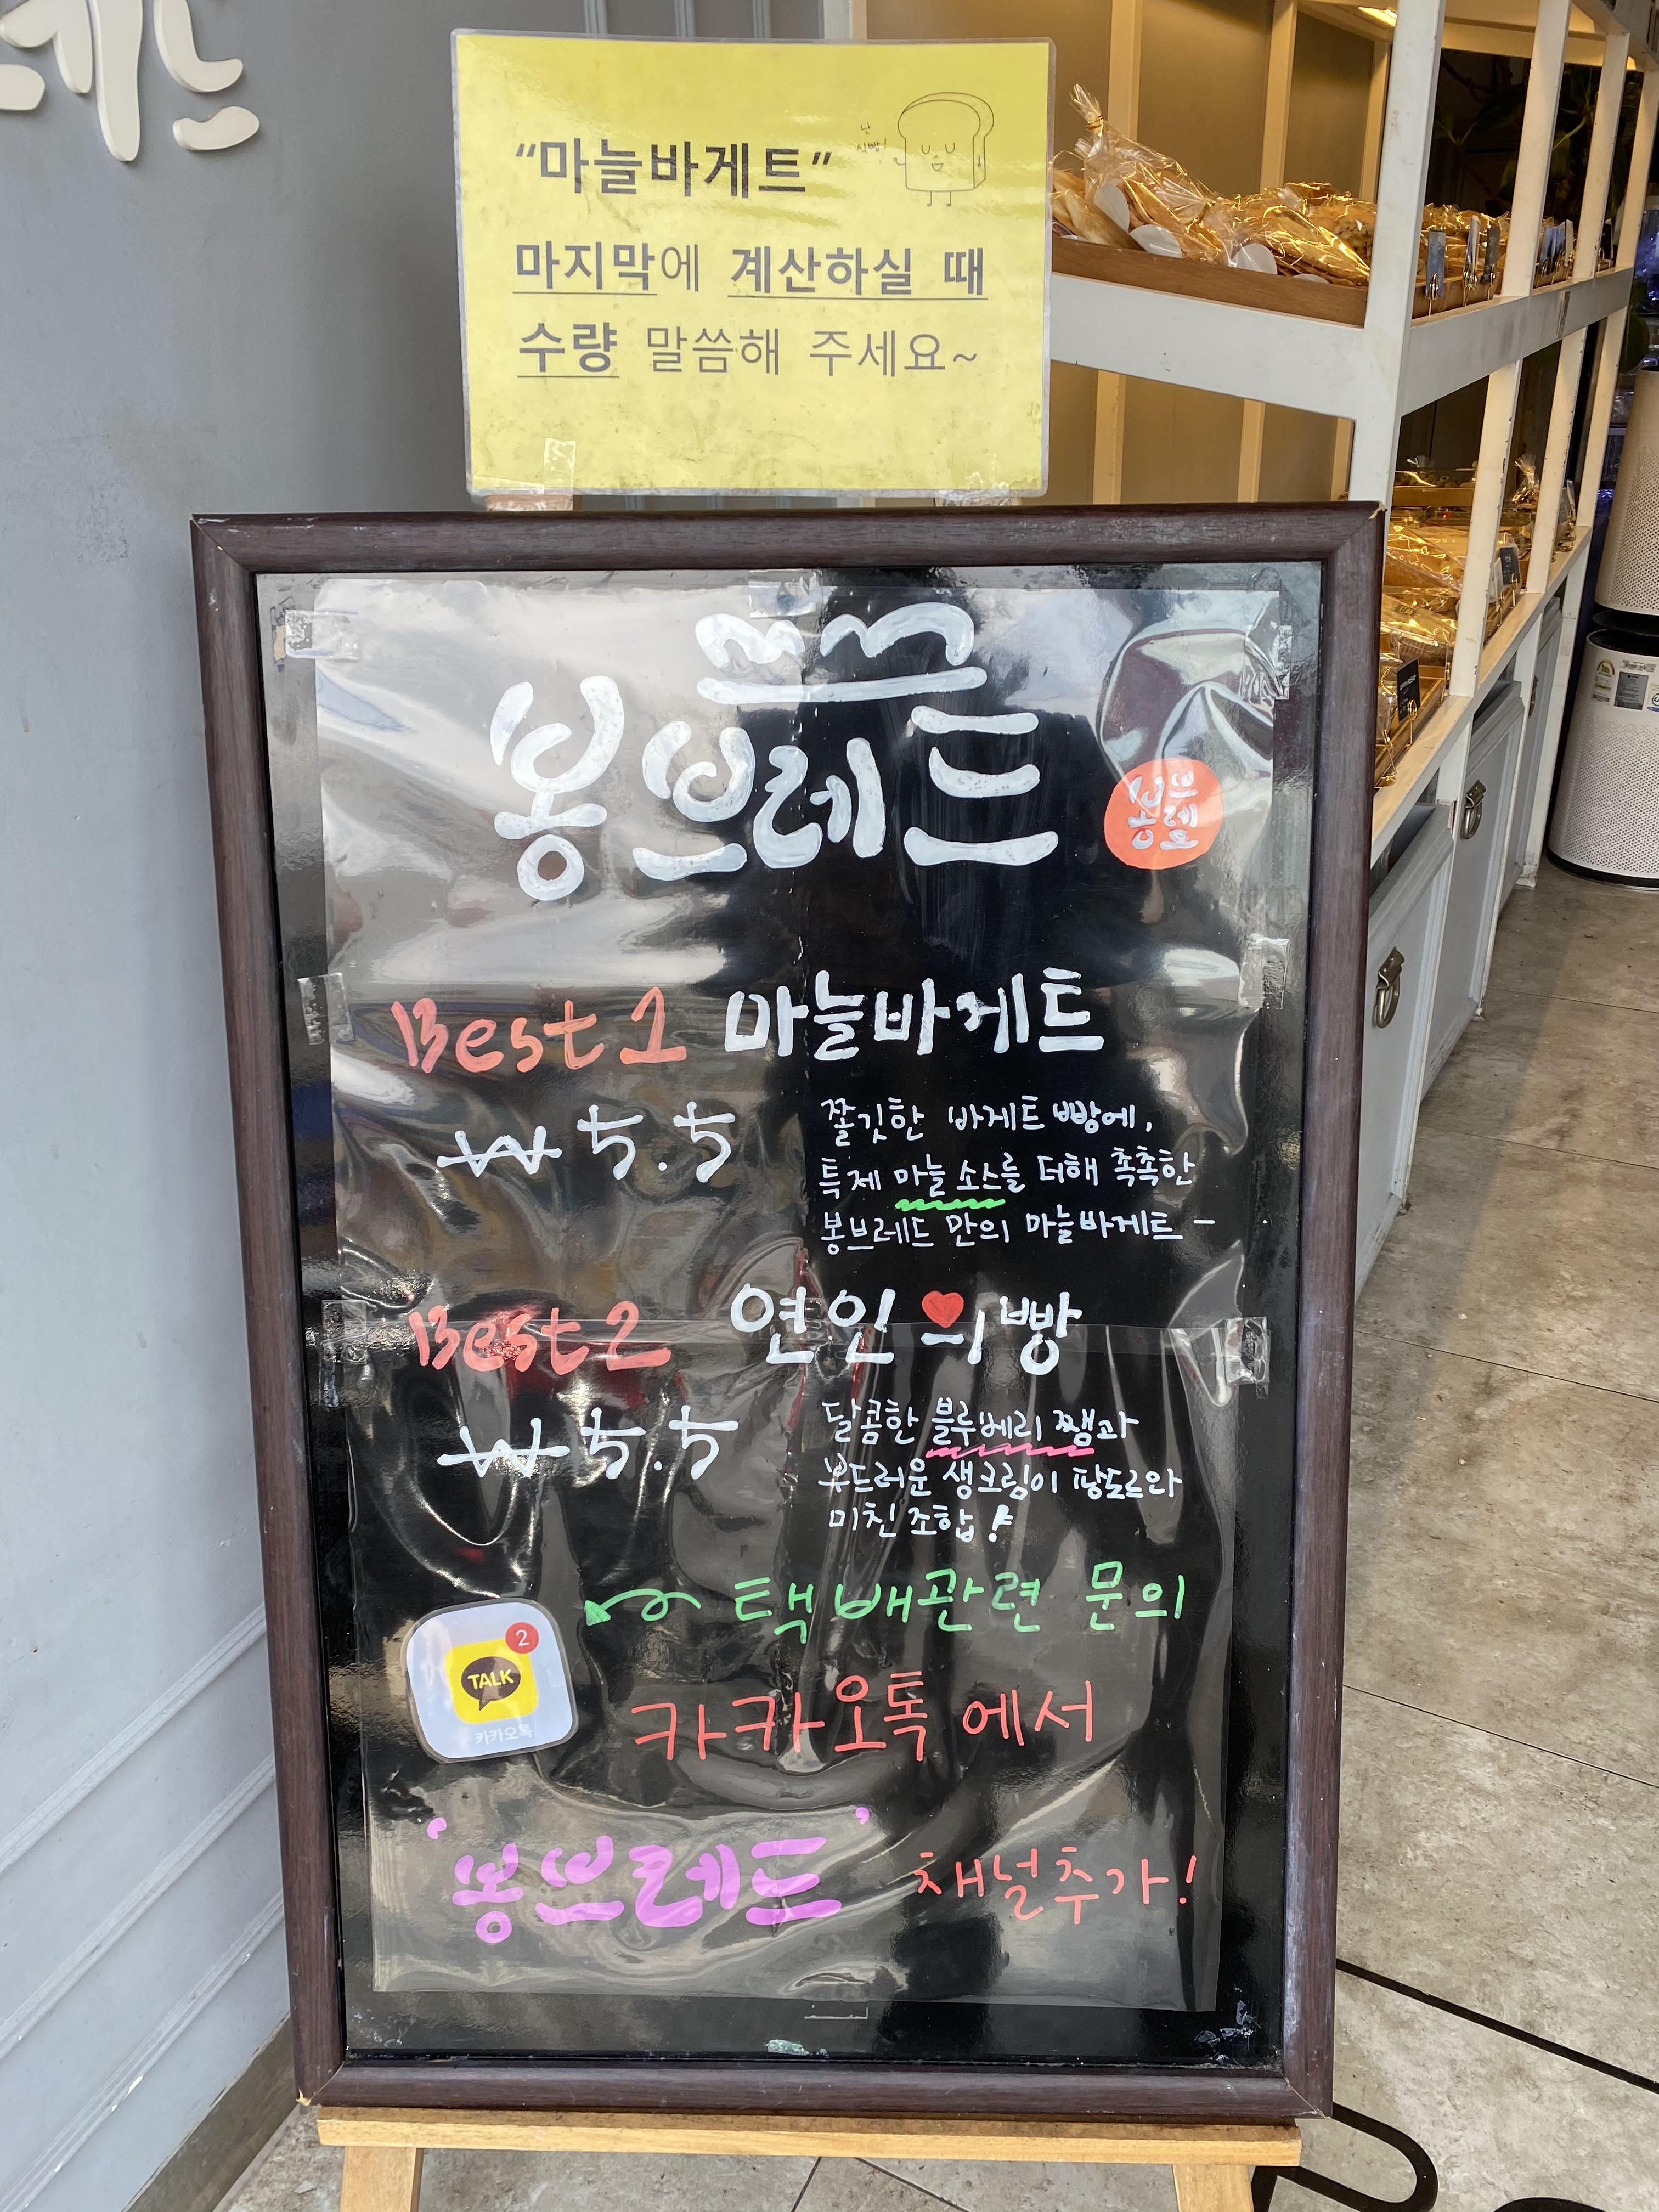 난
식빵!
“마늘바게트”
마지막에 계산하실 때
수량 말씀해 주세요~
봉브레드
봉브레드
Best 1 마늘바게트
₩ 5.5
쫄깃한 바게트 빵에,
특제 마늘 소스를 더해 촉촉한
봉브레드 만의 마늘바게트 -
Best 2 연인의 빵
₩ 5.5
달콤한 블루베리 쨈과
부드러운 생크림이 팡도르와
미친 조합!
택배관련 문의
2
TALK
카카오톡
카카오톡에서
'봉브레드' 채널추가!